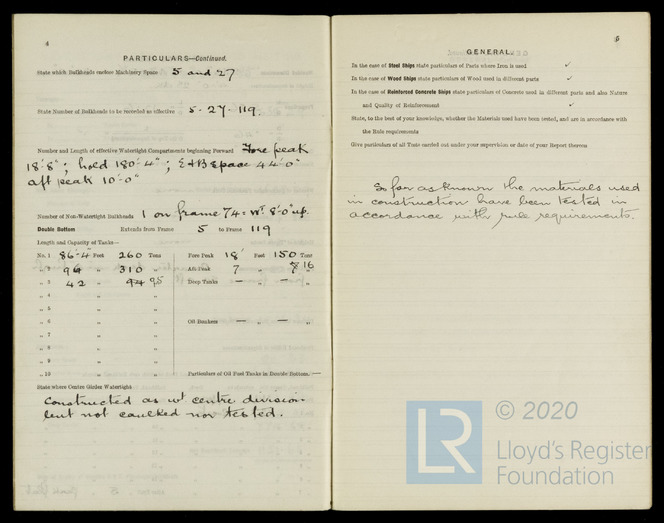 4
PARTICULARS—Continued.
State which Bulkheads enclose Machinery Space 5 and 27
State Number of Bulkheads to be recorded as effective 5 - 27 - 119.
Number and Length of effective Watertight Compartments beginning Forward Fore peak
18'8"; hold 180'-4"; E+B space 44'0"
aft peak 10'-0"
Number of Non-Watertight Bulkheads 1 on frame 74 = Wt. 8'-0" up.
Double Bottom Extends from Frame 5 to Frame 119
Length and Capacity of Tanks—
No. 1 86'-4" Feet 260 Tons Fore Peak 18' Feet 150 Tons
„ 2 94 „ 310 „ Aft Peak 7 „ 16 „
„ 3 42 „ 94 95 Deep Tanks — „ — „
„ 4 „ „
„ 5 „ „
„ 6 „ „ Oil Bunkers — „ — „
„ 7 „ „
„ 8 „ „
„ 9 „ „
„ 10 „ „ Particulars of Oil Fuel Tanks in Double Bottom. —
State where Centre Girder Watertight
Constructed as wt centre division
but not caulked nor tested.
5
GENERAL.
In the case of Steel Ships state particulars of Parts where Iron is used ✓
In the case of Wood Ships state particulars of Wood used in different parts ✓
In the case of Reinforced Concrete Ships state particulars of Concrete used in different parts and also Nature
and Quality of Reinforcement ✓
State, to the best of your knowledge, whether the Materials used have been tested, and are in accordance with
the Rule requirements
Give particulars of all Tests carried out under your supervision or date of your Report thereon
So far as known the materials used
in construction have been tested in
accordance with rule requirements.
LR © 2020
Lloyd's Register
Foundation